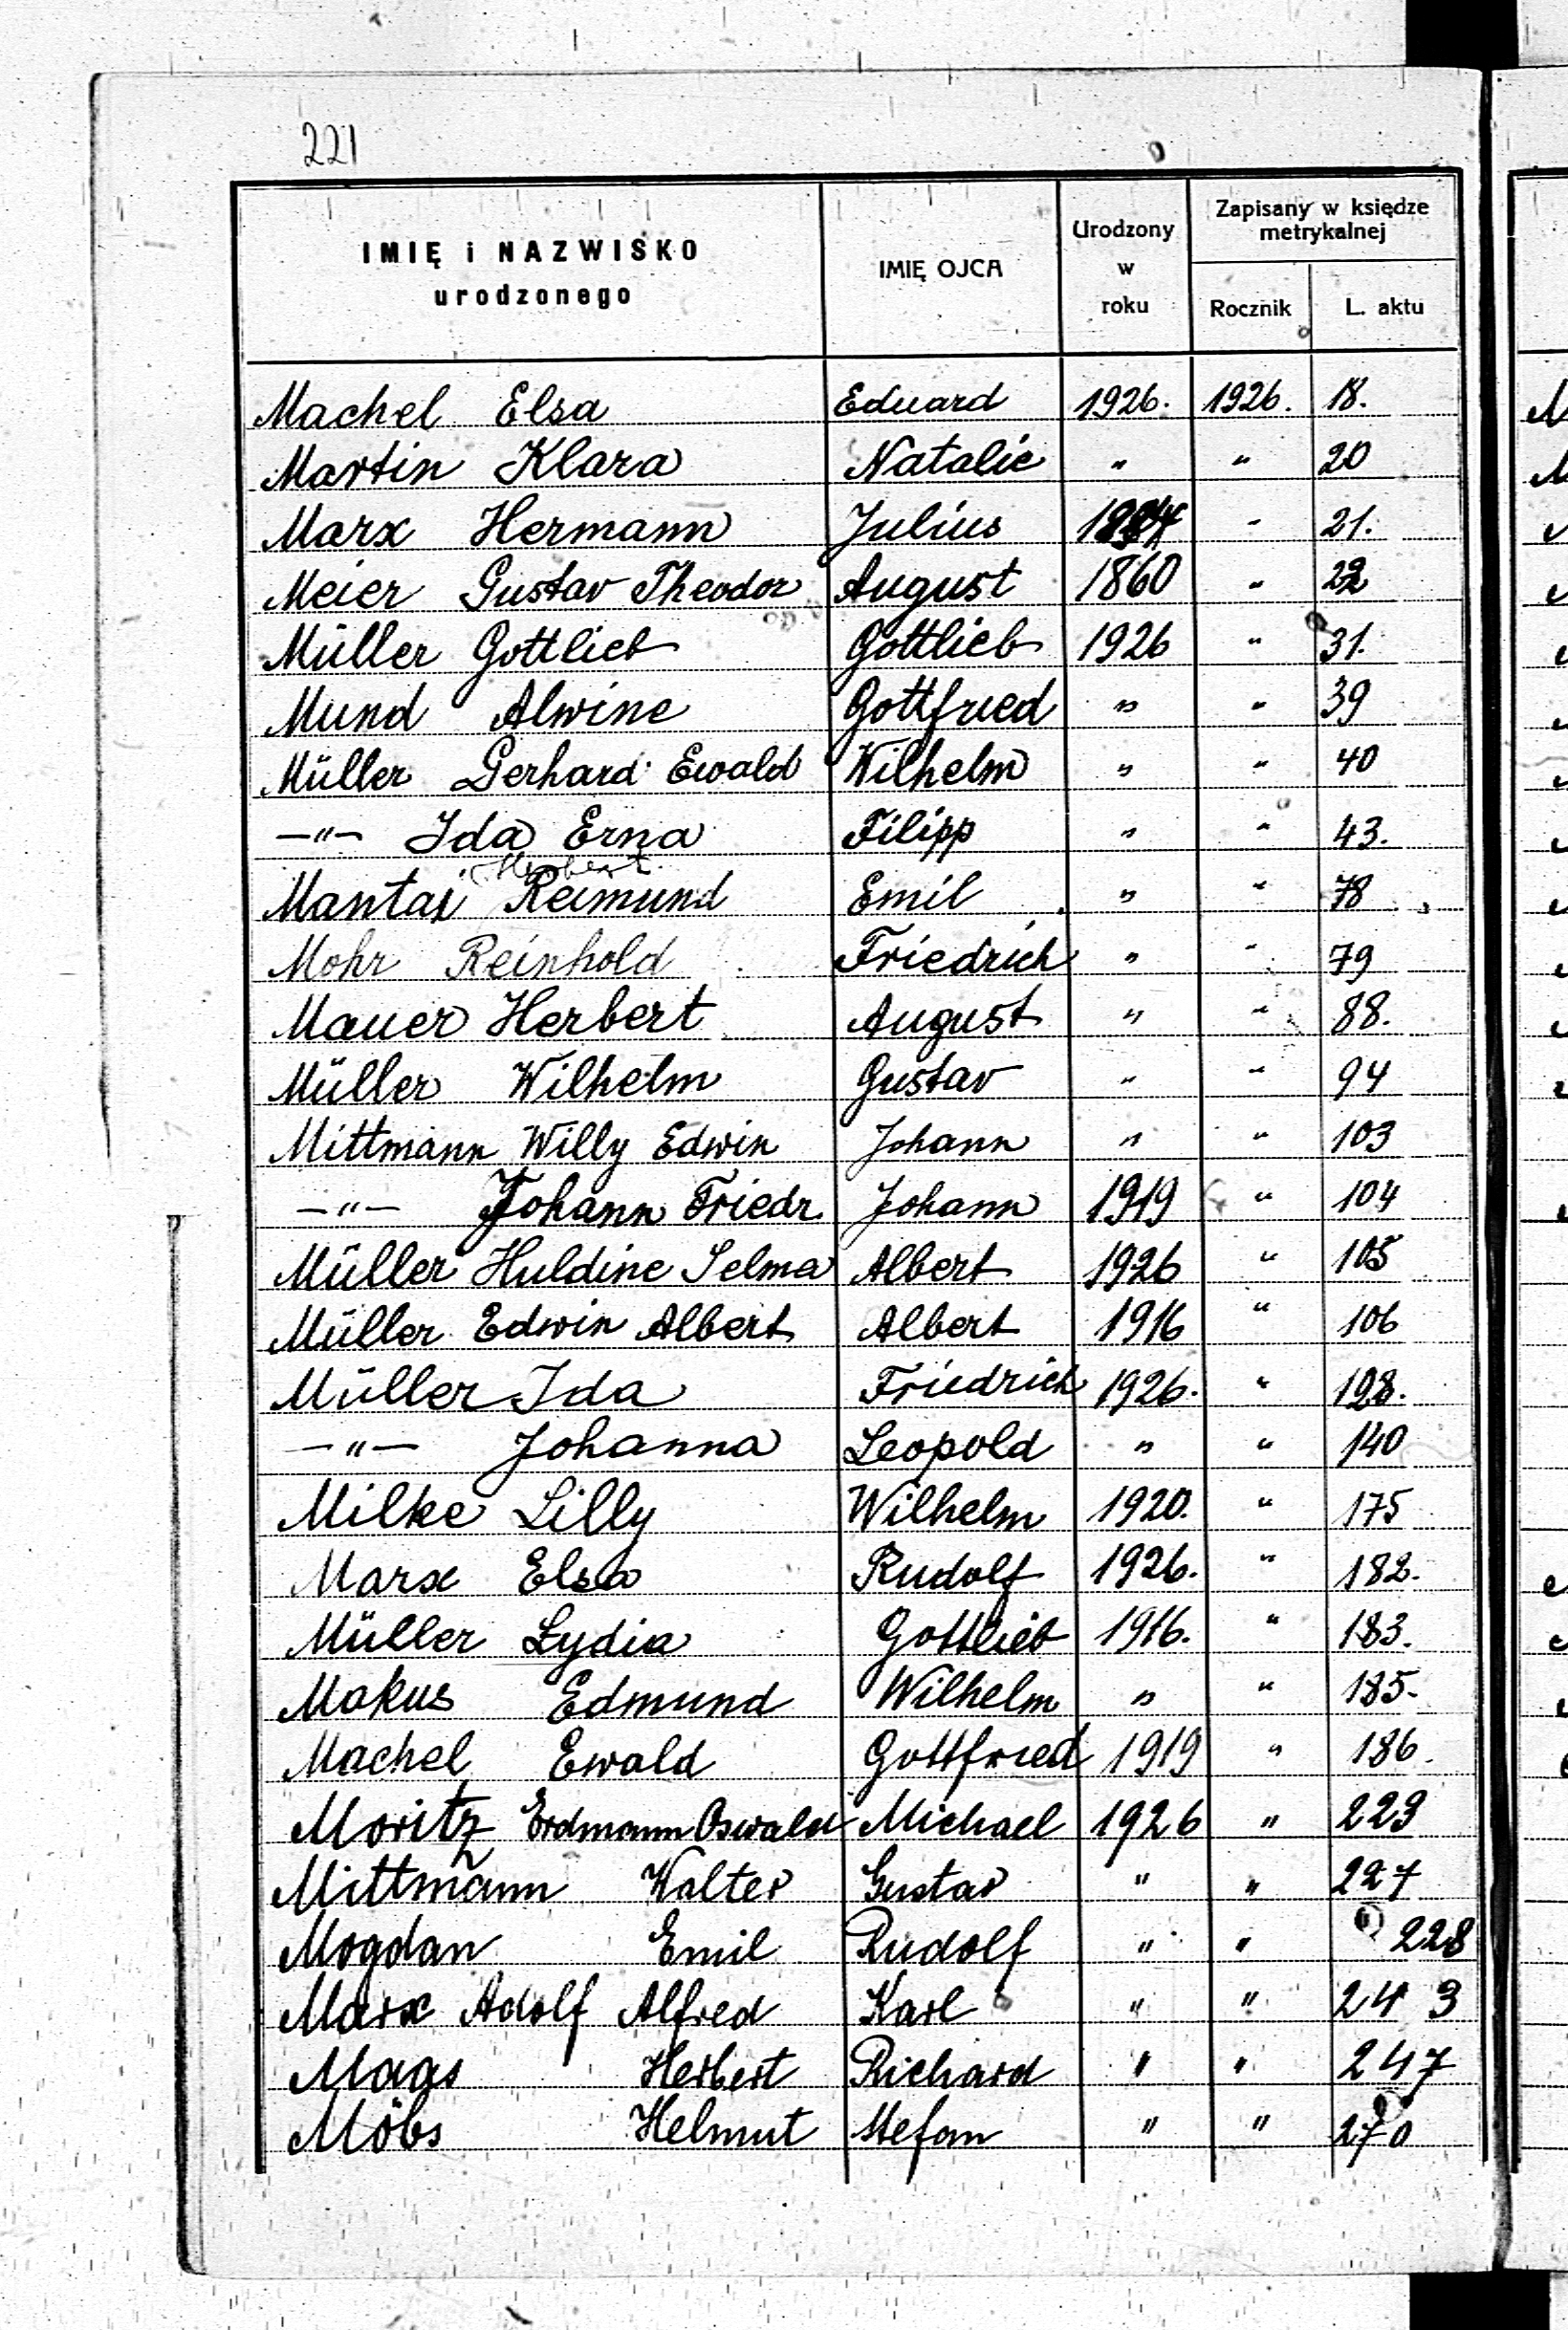 221
IMIĘ i NAZWISKO urodzonego | IMIĘ OJCA | Urodzony w roku | Zapisany w księdze metrykalnej
Rocznik | L. aktu
Machel Elsa | Eduard | 1926. | 1926. | 18.
Martin Klara | Natalie | " | " | 20
Marx Hermann | Julius | | " | 21.
Meier Gustav Theodor | August | 1860 | " | 22
Müller Gottlieb | Gottlieb | 1926 | " | 31.
Mund Alwine | Gottfried | " | " | 39
Müller Gerhard Ewald | Wilhelm | " | " | 40
—"— Ida Erna | Filipp | " | " | 43.
Herbert
Mantai Reimund | Emil | " | " | 78
Mohr Reinhold | Friedrich | " | " | 79
Mauer Herbert | August | " | " | 88.
Müller Wilhelm | Gustav | " | " | 94
Mittmann Willy Edwin | Johann | " | " | 103
—"— Johann Friedr. | Johann | 1919 | " | 104
Müller Huldine Selma | Albert | 1926 | " | 105
Müller Edwin Albert | Albert | 1916 | " | 106
Müller Ida | Friedrich | 1926. | " | 128.
—"— Johanna | Leopold | " | " | 140
Milke Lilly | Wilhelm | 1920. | " | 175
Marx Elsa | Rudolf | 1926. | " | 182.
Müller Lydia | Gottlieb | 1916. | " | 183.
Makus Edmund | Wilhelm | " | " | 185.
Machel Ewald | Gottfried | 1919 | " | 186.
Moritz Erdmann Oswald | Michael | 1926 | " | 223
Mittmann Walter | Gustav | " | " | 227
Mogdan Emil | Rudolf | " | " | 228
Marx Adolf Alfred | Karl | " | " | 243
Maas Herbert | Richard | " | " | 247
Möbs Helmut | Stefan | " | " | 270